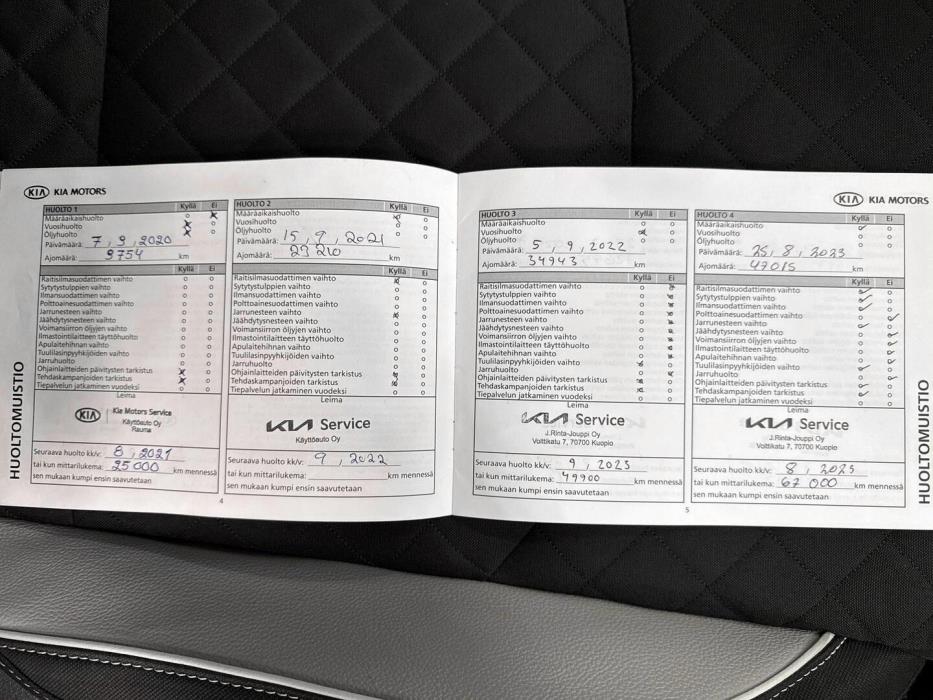 KIA KIA MOTORS
HUOLTO 1 Kyllä Ei
Määräaikaishuolto
Vuosihuolto
Öljyhuolto
Päivämäärä: 7, 9, 2020
Ajomäärä: 9754 km
Kyllä Ei
Raitisilmasuodattimen vaihto
Sytytystulppien vaihto
Ilmansuodattimen vaihto
Polttoainesuodattimen vaihto
Jarrunesteen vaihto
Jäähdytysnesteen vaihto
Voimansiirron öljyjen vaihto
Ilmastointilaitteen täyttöhuolto
Apulaitehihnan vaihto
Tuulilasinpyyhkijöiden vaihto
Jarruhuolto
Ohjainlaitteiden päivitysten tarkistus
Tehdaskampanjoiden tarkistus
Tiepalvelun jatkaminen vuodeksi
Leima
KIA Kia Motors Service
Käyttöauto Oy
Rauma
Seuraava huolto kk/v: 8, 2021
tai kun mittarilukema: 25 000 km mennessä
sen mukaan kumpi ensin saavutetaan
HUOLTO 2 Kyllä Ei
Määräaikaishuolto
Vuosihuolto
Öljyhuolto
Päivämäärä: 15, 9, 2021
Ajomäärä: 23 210 km
Kyllä Ei
Raitisilmasuodattimen vaihto
Sytytystulppien vaihto
Ilmansuodattimen vaihto
Polttoainesuodattimen vaihto
Jarrunesteen vaihto
Jäähdytysnesteen vaihto
Voimansiirron öljyjen vaihto
Ilmastointilaitteen täyttöhuolto
Apulaitehihnan vaihto
Tuulilasinpyyhkijöiden vaihto
Jarruhuolto
Ohjainlaitteiden päivitysten tarkistus
Tehdaskampanjoiden tarkistus
Tiepalvelun jatkaminen vuodeksi
Leima
KIA Service
Käyttöauto Oy
Seuraava huolto kk/v: 9, 2022
tai kun mittarilukema: km mennessä
sen mukaan kumpi ensin saavutetaan
HUOLTOMUISTIO
4
KIA KIA MOTORS
HUOLTO 3 Kyllä Ei
Määräaikaishuolto
Vuosihuolto
Öljyhuolto
Päivämäärä: 5, 9, 2022
Ajomäärä: 34943 km
Kyllä Ei
Raitisilmasuodattimen vaihto
Sytytystulppien vaihto
Ilmansuodattimen vaihto
Polttoainesuodattimen vaihto
Jarrunesteen vaihto
Jäähdytysnesteen vaihto
Voimansiirron öljyjen vaihto
Ilmastointilaitteen täyttöhuolto
Apulaitehihnan vaihto
Tuulilasinpyyhkijöiden vaihto
Jarruhuolto
Ohjainlaitteiden päivitysten tarkistus
Tehdaskampanjoiden tarkistus
Tiepalvelun jatkaminen vuodeksi
Leima
KIA Service
J.Rinta-Jouppi Oy
Volttikatu 7, 70700 Kuopio
Seuraava huolto kk/v: 9, 2023
tai kun mittarilukema: 49900 km mennessä
sen mukaan kumpi ensin saavutetaan
HUOLTO 4 Kyllä Ei
Määräaikaishuolto
Vuosihuolto
Öljyhuolto
Päivämäärä: 25, 8, 2023
Ajomäärä: 47015 km
Kyllä Ei
Raitisilmasuodattimen vaihto
Sytytystulppien vaihto
Ilmansuodattimen vaihto
Polttoainesuodattimen vaihto
Jarrunesteen vaihto
Jäähdytysnesteen vaihto
Voimansiirron öljyjen vaihto
Ilmastointilaitteen täyttöhuolto
Apulaitehihnan vaihto
Tuulilasinpyyhkijöiden vaihto
Jarruhuolto
Ohjainlaitteiden päivitysten tarkistus
Tehdaskampanjoiden tarkistus
Tiepalvelun jatkaminen vuodeksi
Leima
KIA Service
J.Rinta-Jouppi Oy
Volttikatu 7, 70700 Kuopio
Seuraava huolto kk/v: 8, 2025
tai kun mittarilukema: 67 000 km mennessä
sen mukaan kumpi ensin saavutetaan
HUOLTOMUISTIO
5